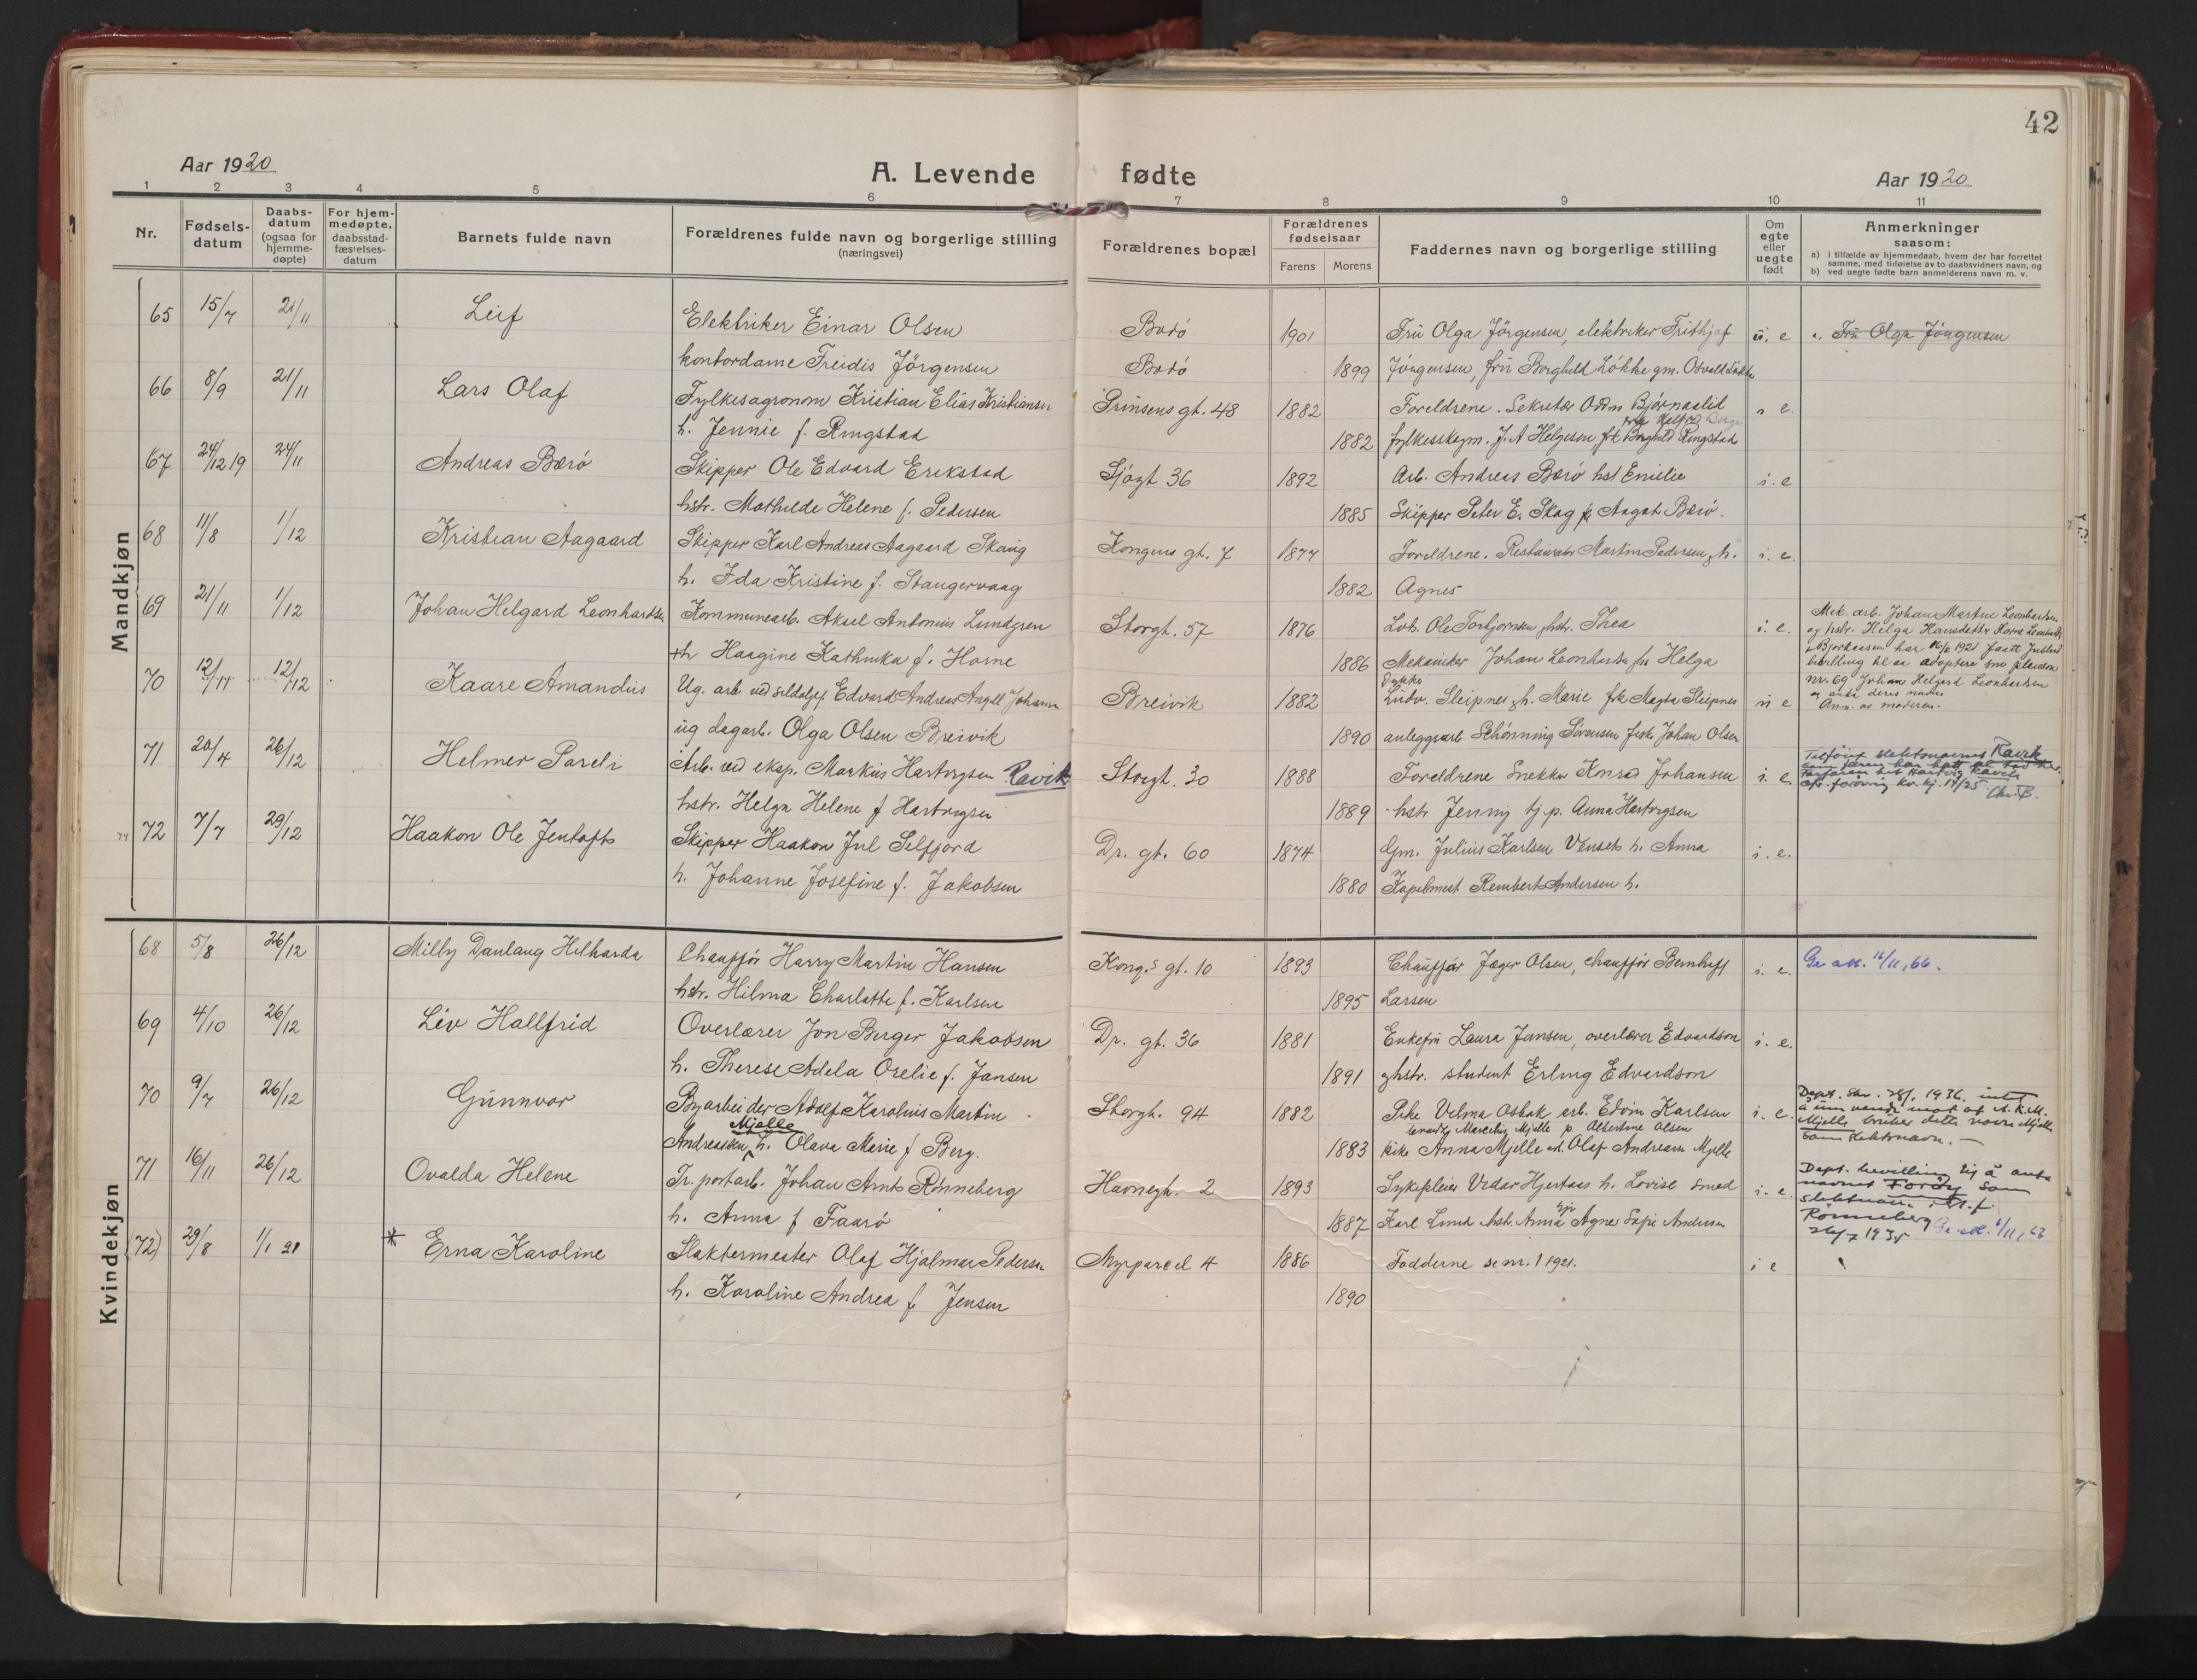 42
Aar 1920
A. Levende fødte
Aar 1920
1 2 3 4 5 6 7 8 9 10 11
Nr.
Fødsels-
datum
Daabs-
datum
(ogsaa for
hjemme-
døpte)
For hjem-
medøpte,
daabsstad-
fæstelses-
datum
Barnets fulde navn
Forældrenes fulde navn og borgerlige stilling
(næringsvei)
Forældrenes bopæl
Forældrenes
fødselsaar
Farens Morens
Faddernes navn og borgerlige stilling
Om
egte
eller
uegte
født
Anmerkninger
saasom:
a) i tilfælde av hjemmedaab, hvem der har forrettet
samme, med tilføielse av to daabsvidners navn, og
b) ved uegte fødte barn anmelderens navn m. v.
Mandkjøn
65 15/7 21/11 Leif Elektriker Einar Olsen Bodó 1901 Frü Olga Jörgensen, elektriker Frithjof ü. e Frü Olga Jörgensen
kontordame Freidis Jörgensen Bodó 1899 Jörgensen, frü Borghild Lökke gm. Osvald Lökke
66 8/9 21/11 Lars Olaf Fylkesagronom Kristian Elias Kristiansen Prinsens gt. 48 1882 Foreldrene. Sekretær Odm Björnaslid e.
h. Jennie f. Ringstad 1882 fylkesskogm. J. A Helgesen frk Borghild Ringstad
67 24/12 19 24/11 Andreas Bærö Skipper Ole Edvard Erikstad Sjögt 36 1892 Arb. Andreas Bærö hst Emilie i. e
hstr. Mathilde Helene f. Pedersen 1885 Skipper Peter E. Skog Aagot Bærö.
68 11/8 1/12 Kristian Aagaard Skipper Karl Andreas Aagaard Skaug Kongens gt. 7 1877 Foreldrene. Restauratr Martin Pedersen h. i. e.
h. Ida Kristine f. Stangervaag 1882 Agnes
69 21/11 1/12 Johan Helgard Leonhardsen Kommunearb. Aksel Antonius Lundgren Storgt. 57 1876 Ole Torbjornsen hstr. Thea i. e. Mek. arb. Johan Martin Leonhartsen
h Haagine Kathinka f. Horne 1886 Mekaniker Johan Leonharts Helga og hstr. Helga Hansdatter
Bjorkaasen har 1921 faatt
bevilling til aa adoptere
nr. 69 Johan Helgard Leonhartsen
og anta deres navn
70 12/11 12/12 Kaare Amandüs Ug. arb ved sildoljef Edvard Andreas Angell Johansen Breivik 1882 Lüdv. Sleipnes h. Marie frk Magda Sleipnes ü e Anm. av moderen.
üg dagarb. Olga Olsen Breivik 1890 anleggsarb Schönning Sörensen Johan Olsen
71 20/4 26/12 Helmer Pareli Arb. ved eksp. Markus Hartvigsen Ravik Storgt. 30 1888 Foreldrene Snekker Konrad Johansen i. e. Tilföiet slektsnavnet Ravik
hstr. Helga Helene f Hartvigsen 1889 hstr Jenny tj. p. Anna Hartvigsen
72 7/7 29/12 Haakon Ole Jentoft Skipper Haakon Jul Selfjord Dr. gt. 60 1874 Gm. Julius Karlsen Venset h. Anna i. e.
h. Johanne Josefine f. Jakobsen 1880 Kapelmest Rembert Andersen h.
Kvindekjøn
68 5/8 26/12 Milly Danlaug Hilharda Chauffór Harry Martin Hansen Kong.s gt. 10 1893 Chauffór Jæger Olsen, chauffór Bernhoff i. e. 16/11, 66.
hstr. Hilma Charlotte f. Karlsen 1895 Larsen
69 4/10 26/12 Liv Hallfrid Overlærer Jon Berger Jakobsen Dr. gt. 36 1881 Enkefrü Laura Jansen, overlærer Edvardson i. e.
h. Therese Adela Orelie f. Jansen 1891 hstr. student Erling Edvardson
70 9/7 26/12 Günnvor Byarbeider Adolf Karolius Martin Storgt. 94 1882 Pike Velma Osbak arb. Edvin Karlsen i. e. Dept. 1936. intet
Mjelle
Andreassen, h. Olava Marie f Berg. 1883 pike Anna Mjelle Olaf Andreas Mjelle å innvende mot at A. K. M.
Mjelle bruker dette navn Mjelle
som slektsnavn.
71 16/11 26/12 Ovalda Helene Tr. portarb. Johan Arnt Rönneberg Havnegt. 2 1893 Sykepleier Vidar Hjertaas h. Lovise smed i. e. Dept. bevilling til å anta
h. Anna f Faarö 1887 Karl Lund hst. Anna Agnes Sofie Andersen navnet Foröy som
slektsnavn
Rönneberg
1935
(72) 29/8 1/1 21 * Erna Karoline Slaktermester Olaf Hjalmar Pedersen Myrparcel 4 1886 Fadderne se nr. 1 1921. i e
h. Karoline Andrea f Jensen 1890